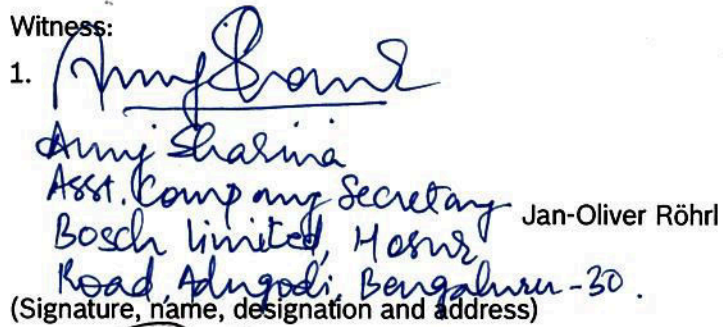 Witness:
1.
Anuj Sharma
Asst. Company Secretary
Jan-Oliver Röhrl
Bosch limited, Hosur
Road, Adugodi, Bengaluru-30.
(Signature, name, designation and address)